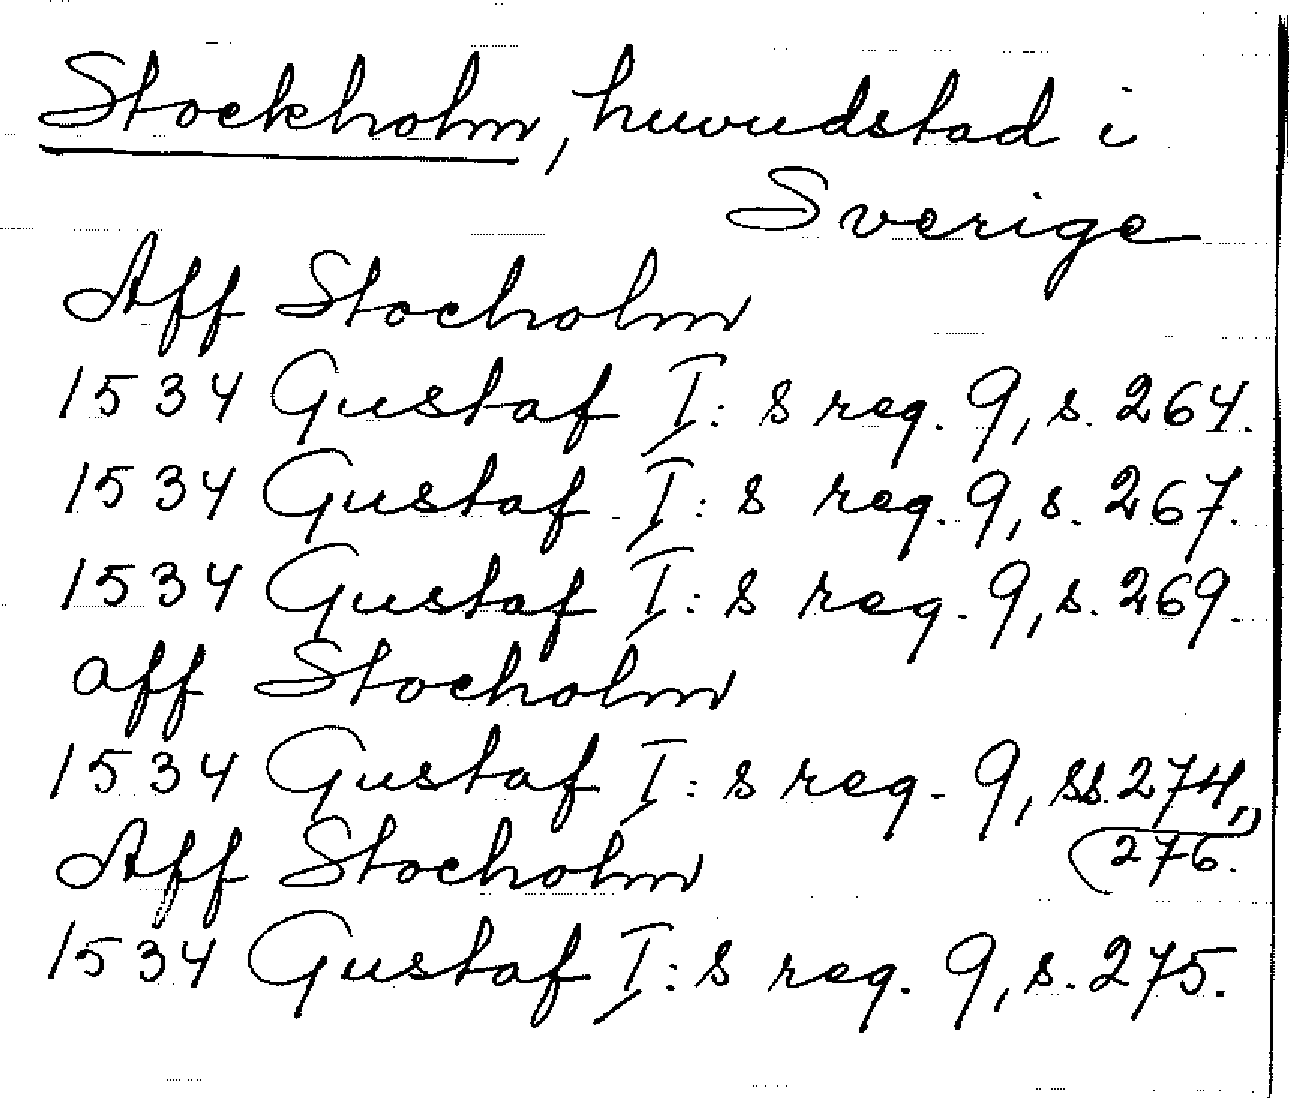 Stockholm, huvudstad i
Sverige
Aff Stocholm
1534 Gustaf I: s reg. 9, s. 264.
1534 Gustaf I: s reg. 9, s. 267.
1534 Gustaf I: s reg. 9, s. 269.
aff Stocholm
1534 Gustaf I: s reg. 9, ss. 274,
276.
Aff Stocholm
1534 Gustaf I: s reg. 9, s. 275.